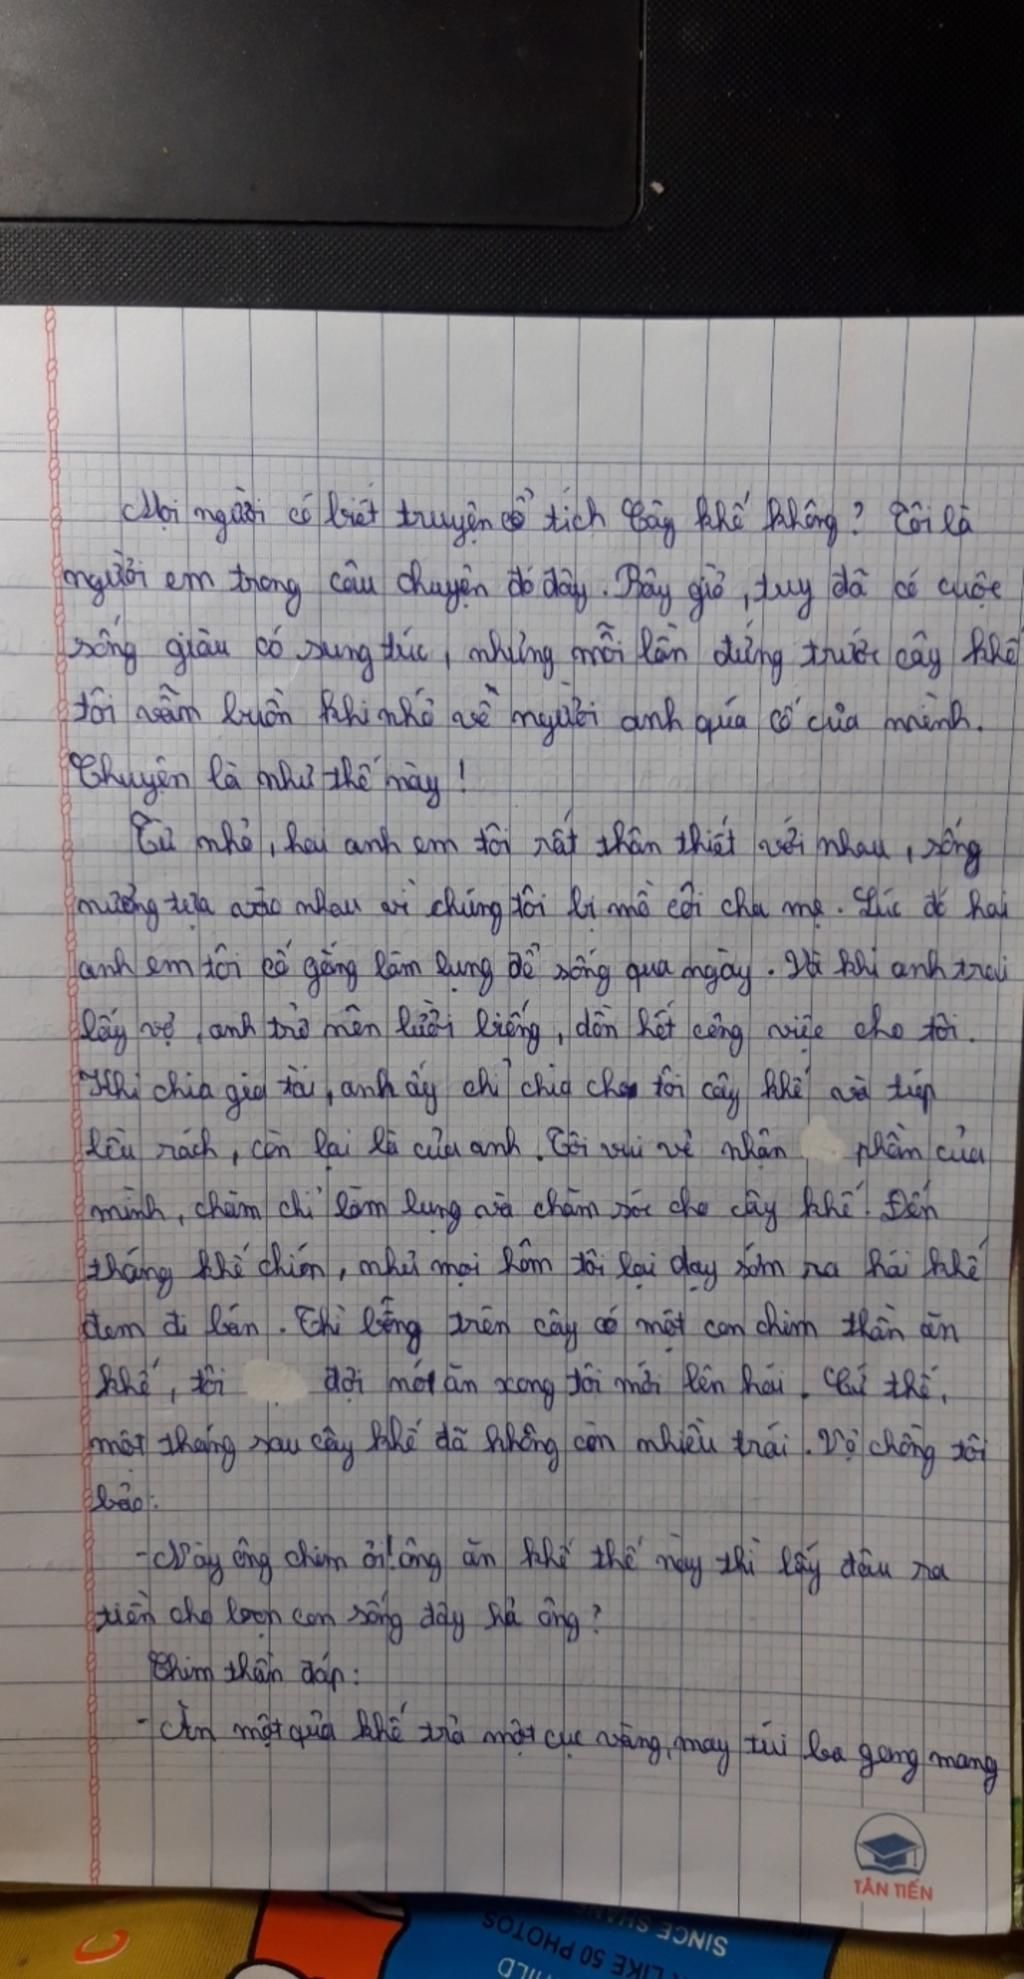 Mọi người có biết truyện cổ tích Cây khế không? Tôi là
người em trong câu chuyện đó đây. Bây giờ, tuy đã có cuộc
sống giàu có sung túc, nhưng mỗi lần đứng trước cây khế
tôi vẫn buồn khi nhớ về người anh quá cố của mình.
Chuyện là như thế này!
Từ nhỏ, hai anh em tôi rất thân thiết với nhau, sống
nương tựa vào nhau vì chúng tôi bị mồ côi cha mẹ. Lúc đó hai
anh em tôi cố gắng làm lụng để sống qua ngày. Từ khi anh trai
lấy vợ, anh trở nên lười biếng, dồn hết công việc cho tôi.
Khi chia gia tài, anh ấy chỉ chia cho tôi cây khế và túp
lều rách, còn lại là của anh. Tôi vui vẻ nhận phần của
mình, chăm chỉ làm lụng và chăm sóc cho cây khế. Đến
tháng khế chién, như mọi hôm tôi lại dạy sớm ra hái khế
đem đi bán. Thì bỗng trên cây có một con chim thần ăn
khế, tôi đợi nó ăn xong tôi mới lên hái. Cứ thế,
một tháng sau cây khế đã không còn nhiều trái. Vợ chồng tôi
bảo:
- Này ông chim ơi! ông ăn khế thế này thì lấy đâu ra
tiền cho bọn con sống đây hả ông?
Chim thần đáp:
- Ăn một quả khế trả một cục vàng, may túi ba gang mang
TÂN TIẾN
SINCE
LIKE 50 PHOTOS